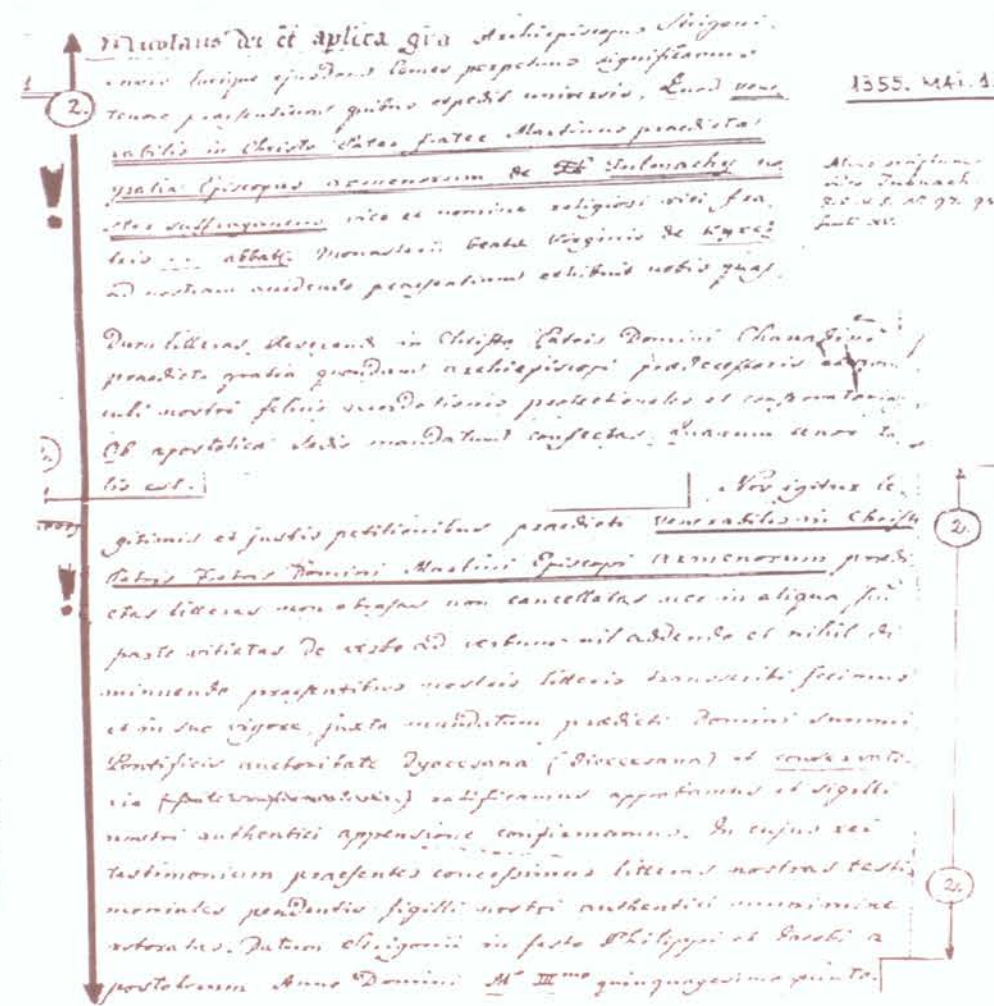 Nicolaus dei et aplica gra Archiepiscopus Strigoni-
ensis locique ejusdem Comes perpetuus significamus
tenore praesentium quibus expedit universis, Quod vene
1355. MAI. 1.
rabilis in Christo Pater frater Martinus praedicta
gratia Episcopus armenorum de Tulmachy no
ster suffraganeus vice et nomine religiosi viri fra
tris .. abbatis Monasterii beatae Virginis de
ad nostram accedendo praesentiam exhibuit nobis quas
dam litteras Reverendi in Christo Patris Domini Chanadini
praedicta gratia quondam archiepiscopi praedecessoris
nostri felicis recordationis protectionales et confirmatorias
Ob apostolicae sedis mandatum confectas, quarum tenor ta
lis est.
Nos igitur le
gitimis et justis petitionibus praedicti Venerabilis in Christo
Patris Fratris Domini Martini Episcopi armenorum praedi
ctas litteras non abrasas non cancellatas nec in aliqua sui
parte vitiatas de verbo ad verbum nil addendo et nihil di
minuendo praesentibus nostris litteris transcribi fecimus
et in suo vigore, juxta mandatum praedicti Domini Summi
Pontificis auctoritate Dyocesana (Dioecesana) et conservato
ria ratificamus approbamus et sigilli
nostri authentici appensione confirmamus. In cujus rei
testimonium praesentes concessimus litteras nostras testi
moniales pendentis sigilli nostri authentici munimine
roboratas. Datum Strigonii in festo Philippi et Jacobi a
postolorum Anno Domini M III mo quinquagesimo quinto.
2.
2.
2.